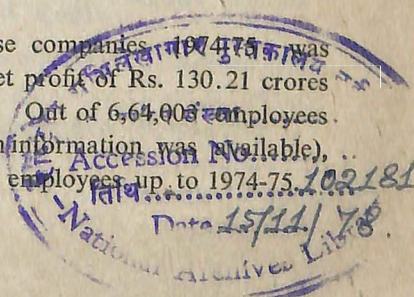 se companies 1974-75 was
et profit of Rs. 130.21 crores
Out of 6,64,003 employees
information was available),
employees up to 1974-75.
अभिलेखागार पुस्तकालय
Accession No. 102181
तिथि
Date 15/11/78.
National Archives Library